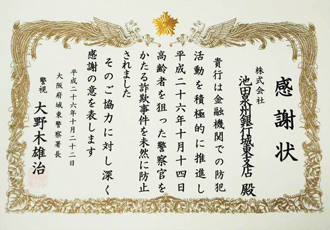 感謝状
株式会社
池田泉州銀行城東支店 殿
貴行は金融機関での防犯
活動を積極的に推進し
平成二十六年十月十四日
高齢者を狙った警察官を
かたる詐欺事件を未然に防止
されました
そのご協力に対し深く
感謝の意を表します
平成二十六年十月二十二日
大阪府城東警察署長
警視 大野木雄治